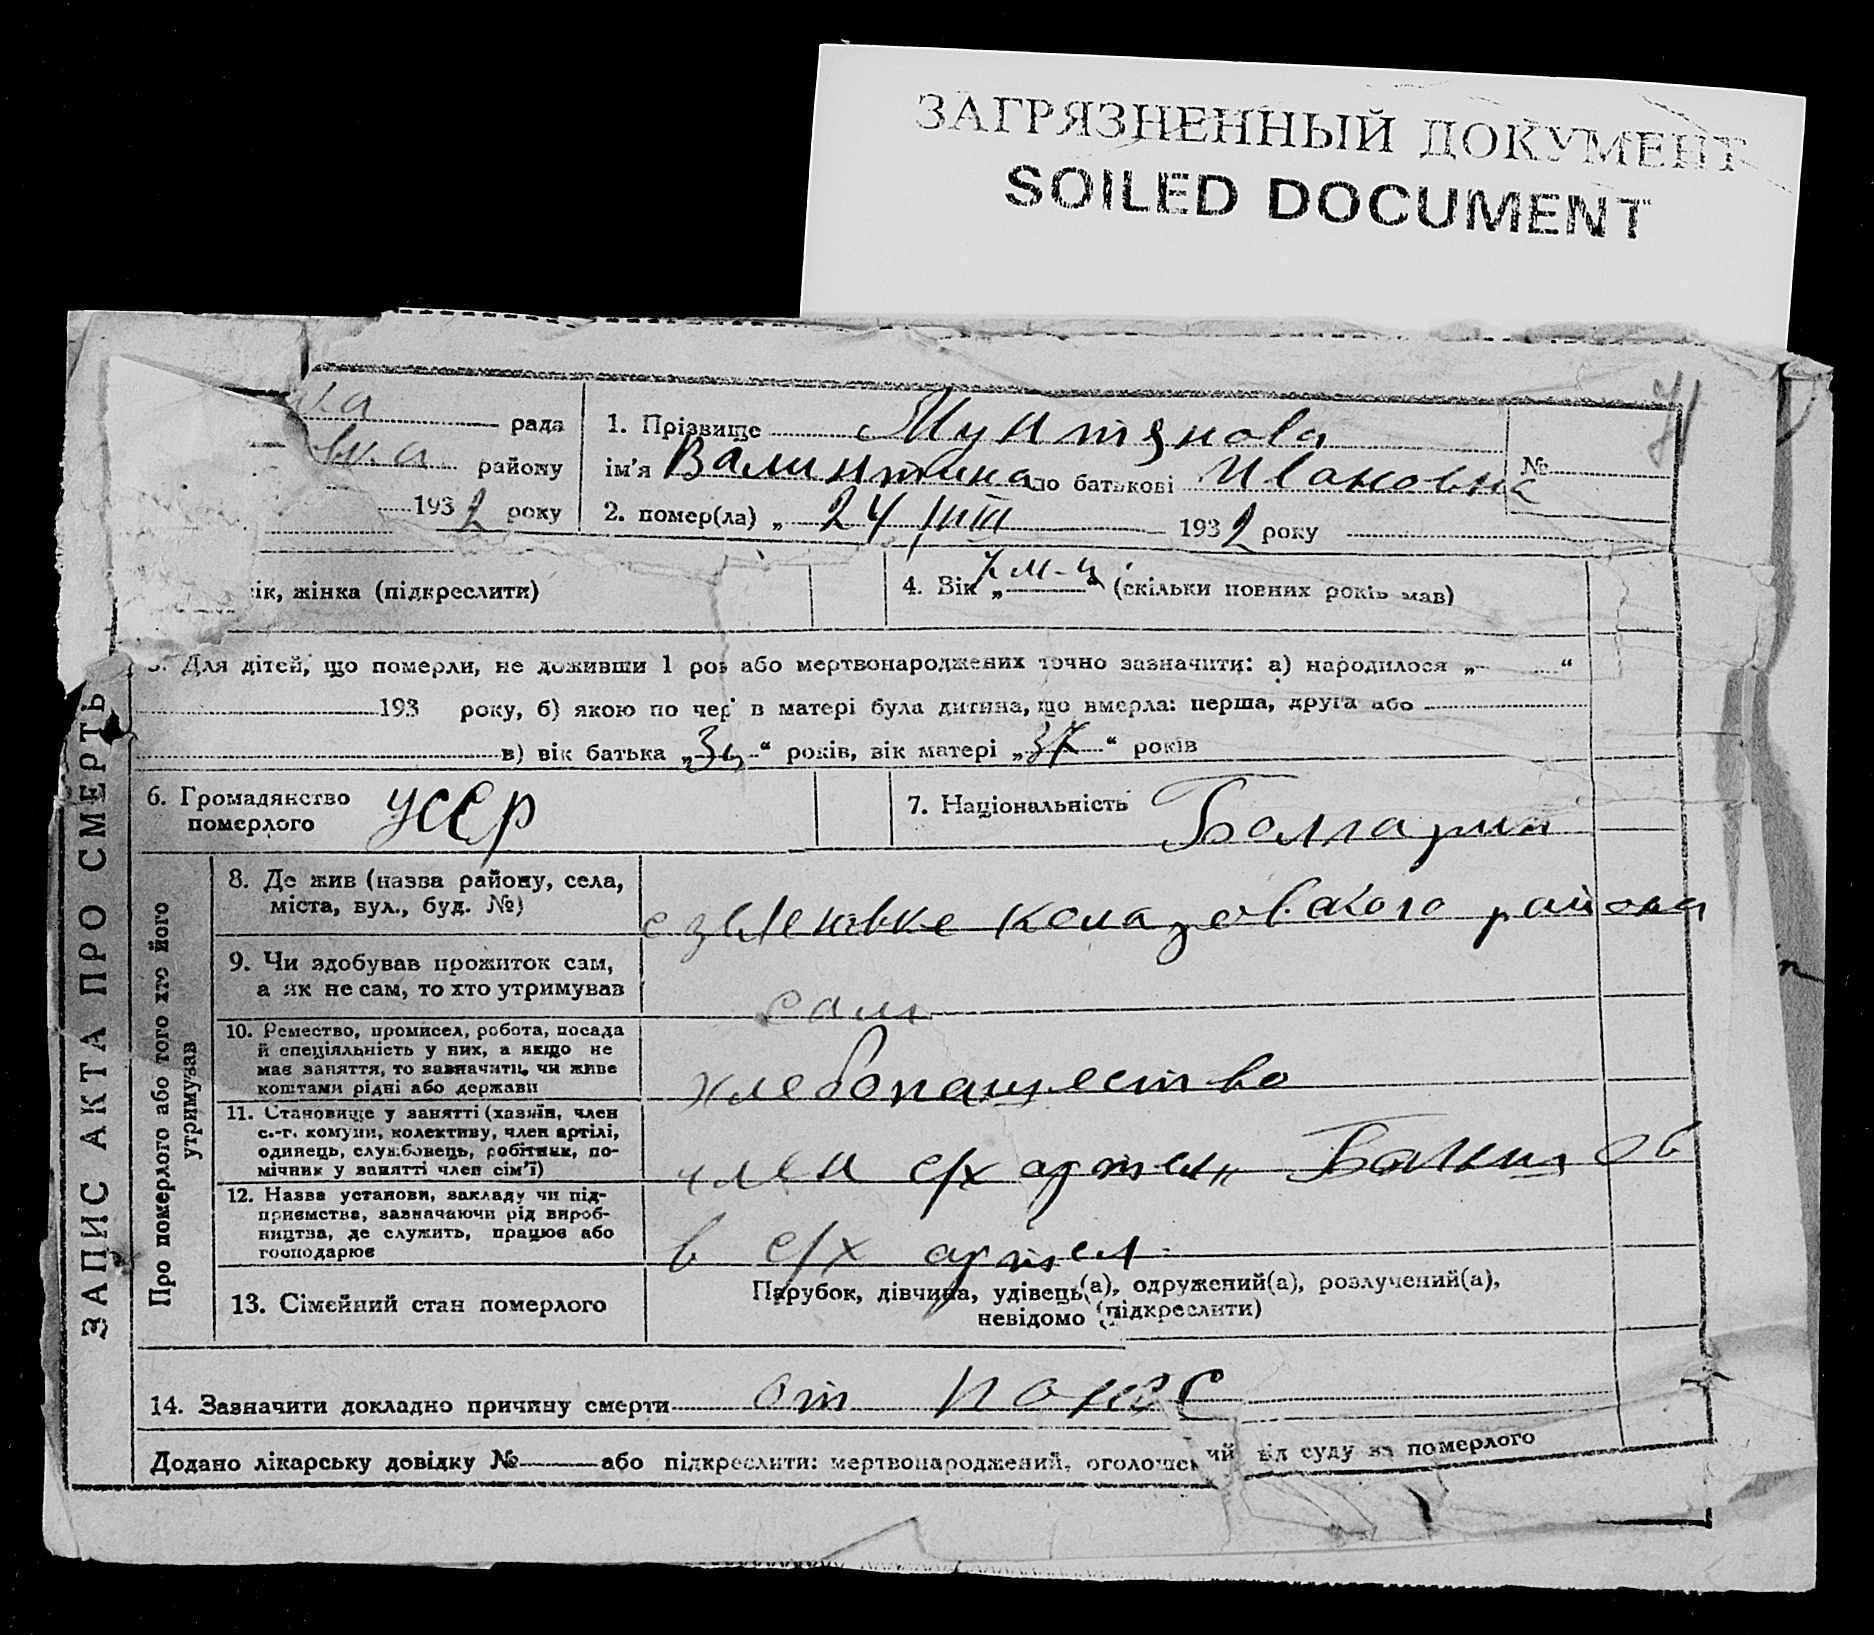 ЗАГРЯЗНЕННЫЙ ДОКУМЕНТ
SOILED DOCUMENT
рада
району
193 2 року
1. Прізвище Мунтянова
ім'я Валинтина по батькові Ивановна
№
2. помер(ла) „ 24 / VIII 193 2 року
жінка (підкреслити)
4. Вік „ 7 м-ц “ (скільки повних років мав)
5. Для дітей, що померли, не доживши 1 рок або мертвонароджених точно зазначити: а) народилося „ “
193 року, б) якою по черг в матері була дитина, що вмерла: перша, друга або
в) вік батька „ “ років, вік матері „37“ років
6. Громадянство
померлого УССР
7. Національність Болгарин
ЗАПИС АКТА ПРО СМЕРТЬ
Про померлого або того хто його
утримував
8. Де жив (назва району, села,
міста, вул., буд. №)
района
9. Чи здобував прожиток сам,
а як не сам, то хто утримував
сам
10. Ремество, промисел, робота, посада
й спеціяльність у них, а якщо не
має заняття, то зазначити, чи живе
коштами рідні або держави
хлебопашество
11. Становище у занятті (хазяїн, член
с.-г. комуни, колективу, член артілі,
одинець, службовець, робітник, по-
мічник у занятті член сім'ї)
член с/х артели
12. Назва установи, закладу чи під-
приємства, зазначаючи рід вироб-
ництва, де служить, працює або
господарює
в с/х артел
13. Сімейний стан померлого
Парубок, дівчина, удівець(а), одружений(а), розлучений(а),
невідомо (підкреслити)
14. Зазначити докладно причину смерти от понос
Додано лікарську довідку № або підкреслити: мертвонароджений, оголошений від суду за померлого